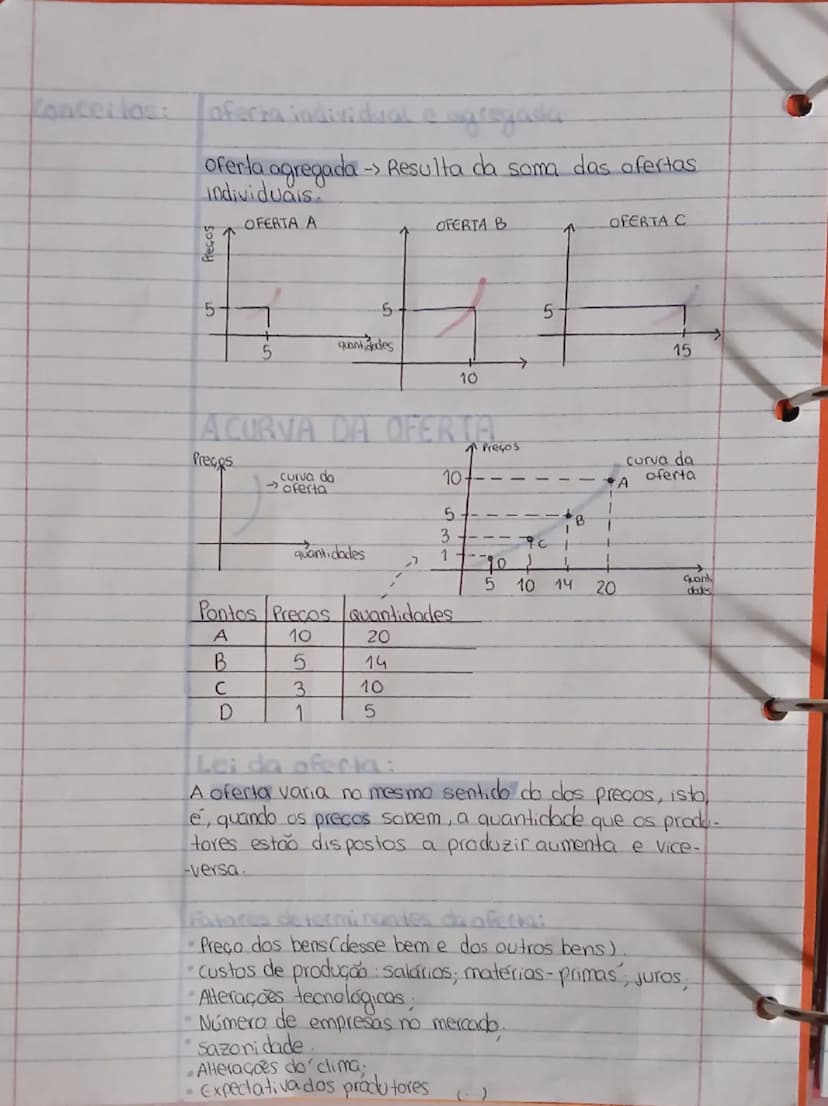 Conceitos: oferta individual e agregada
oferta agregada -> Resulta da soma das ofertas
individuais.
OFERTA A
OFERTA B
OFERTA C
Preços
5
5
quantidades
5
10
5
15
A CURVA DA OFERTA
Preços
curva da
-> oferta
quantidades
Preços
curva da
oferta
10
A
5
B
3
C
1
D
5 10 14 20
quanti
dades
Pontos Preços quantidades
A 10 20
B 5 14
C 3 10
D 1 5
Lei da oferta:
A oferta varia no mesmo sentido do dos preços, isto
é, quando os preços sobem, a quantidade que os produ-
tores estão dispostos a produzir aumenta e vice-
-versa.
Fatores determinantes da oferta:
• Preço dos bens (desse bem e dos outros bens),
• custos de produção: salários; matérias-primas; juros;
• Alterações tecnológicas;
• Número de empresas no mercado;
• sazonidade.
• Alterações do clima;
• Expectativa dos produtores (...)